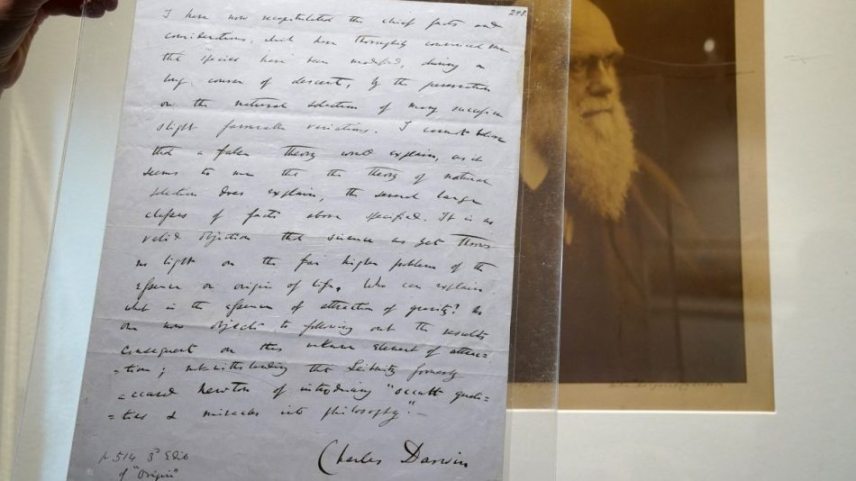 I have now recapitulated the chief facts and
considerations, which have thoroughly convinced me
that species have been modified, during a
long course of descent, by the preservation
or the natural selection of many successive
slight favourable variations. I cannot believe
that a false theory would explain, as it
seems to me that the theory of natural
selection does explain, the several large
classes of facts above specified. It is no
valid objection that science as yet throws
no light on the far higher problem of the
essence or origin of life. Who can explain
what is the essence of attraction of gravity? No
one now objects to following out the results
consequent on this unknown element of attrac-
-tion; notwithstanding that Leibnitz formerly
accused Newton of introducing "occult quali-
-ties & miracles into philosophy".—
Charles Darwin
p. 514 3d Edit
of "Origin"